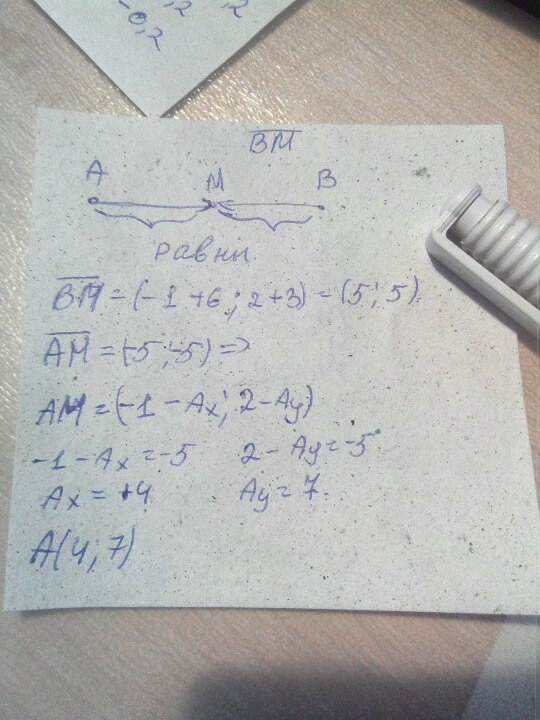 -2 -2
-2
BM
A M B
равны.
BM = (-1 + 6 ; 2 + 3) = (5 ; 5)
AM = (-5 ; -5) =>
AM = (-1 - Ax ; 2 - Ay)
-1 - Ax = -5 2 - Ay = -5
Ax = +4 Ay = 7.
A(4 ; 7)